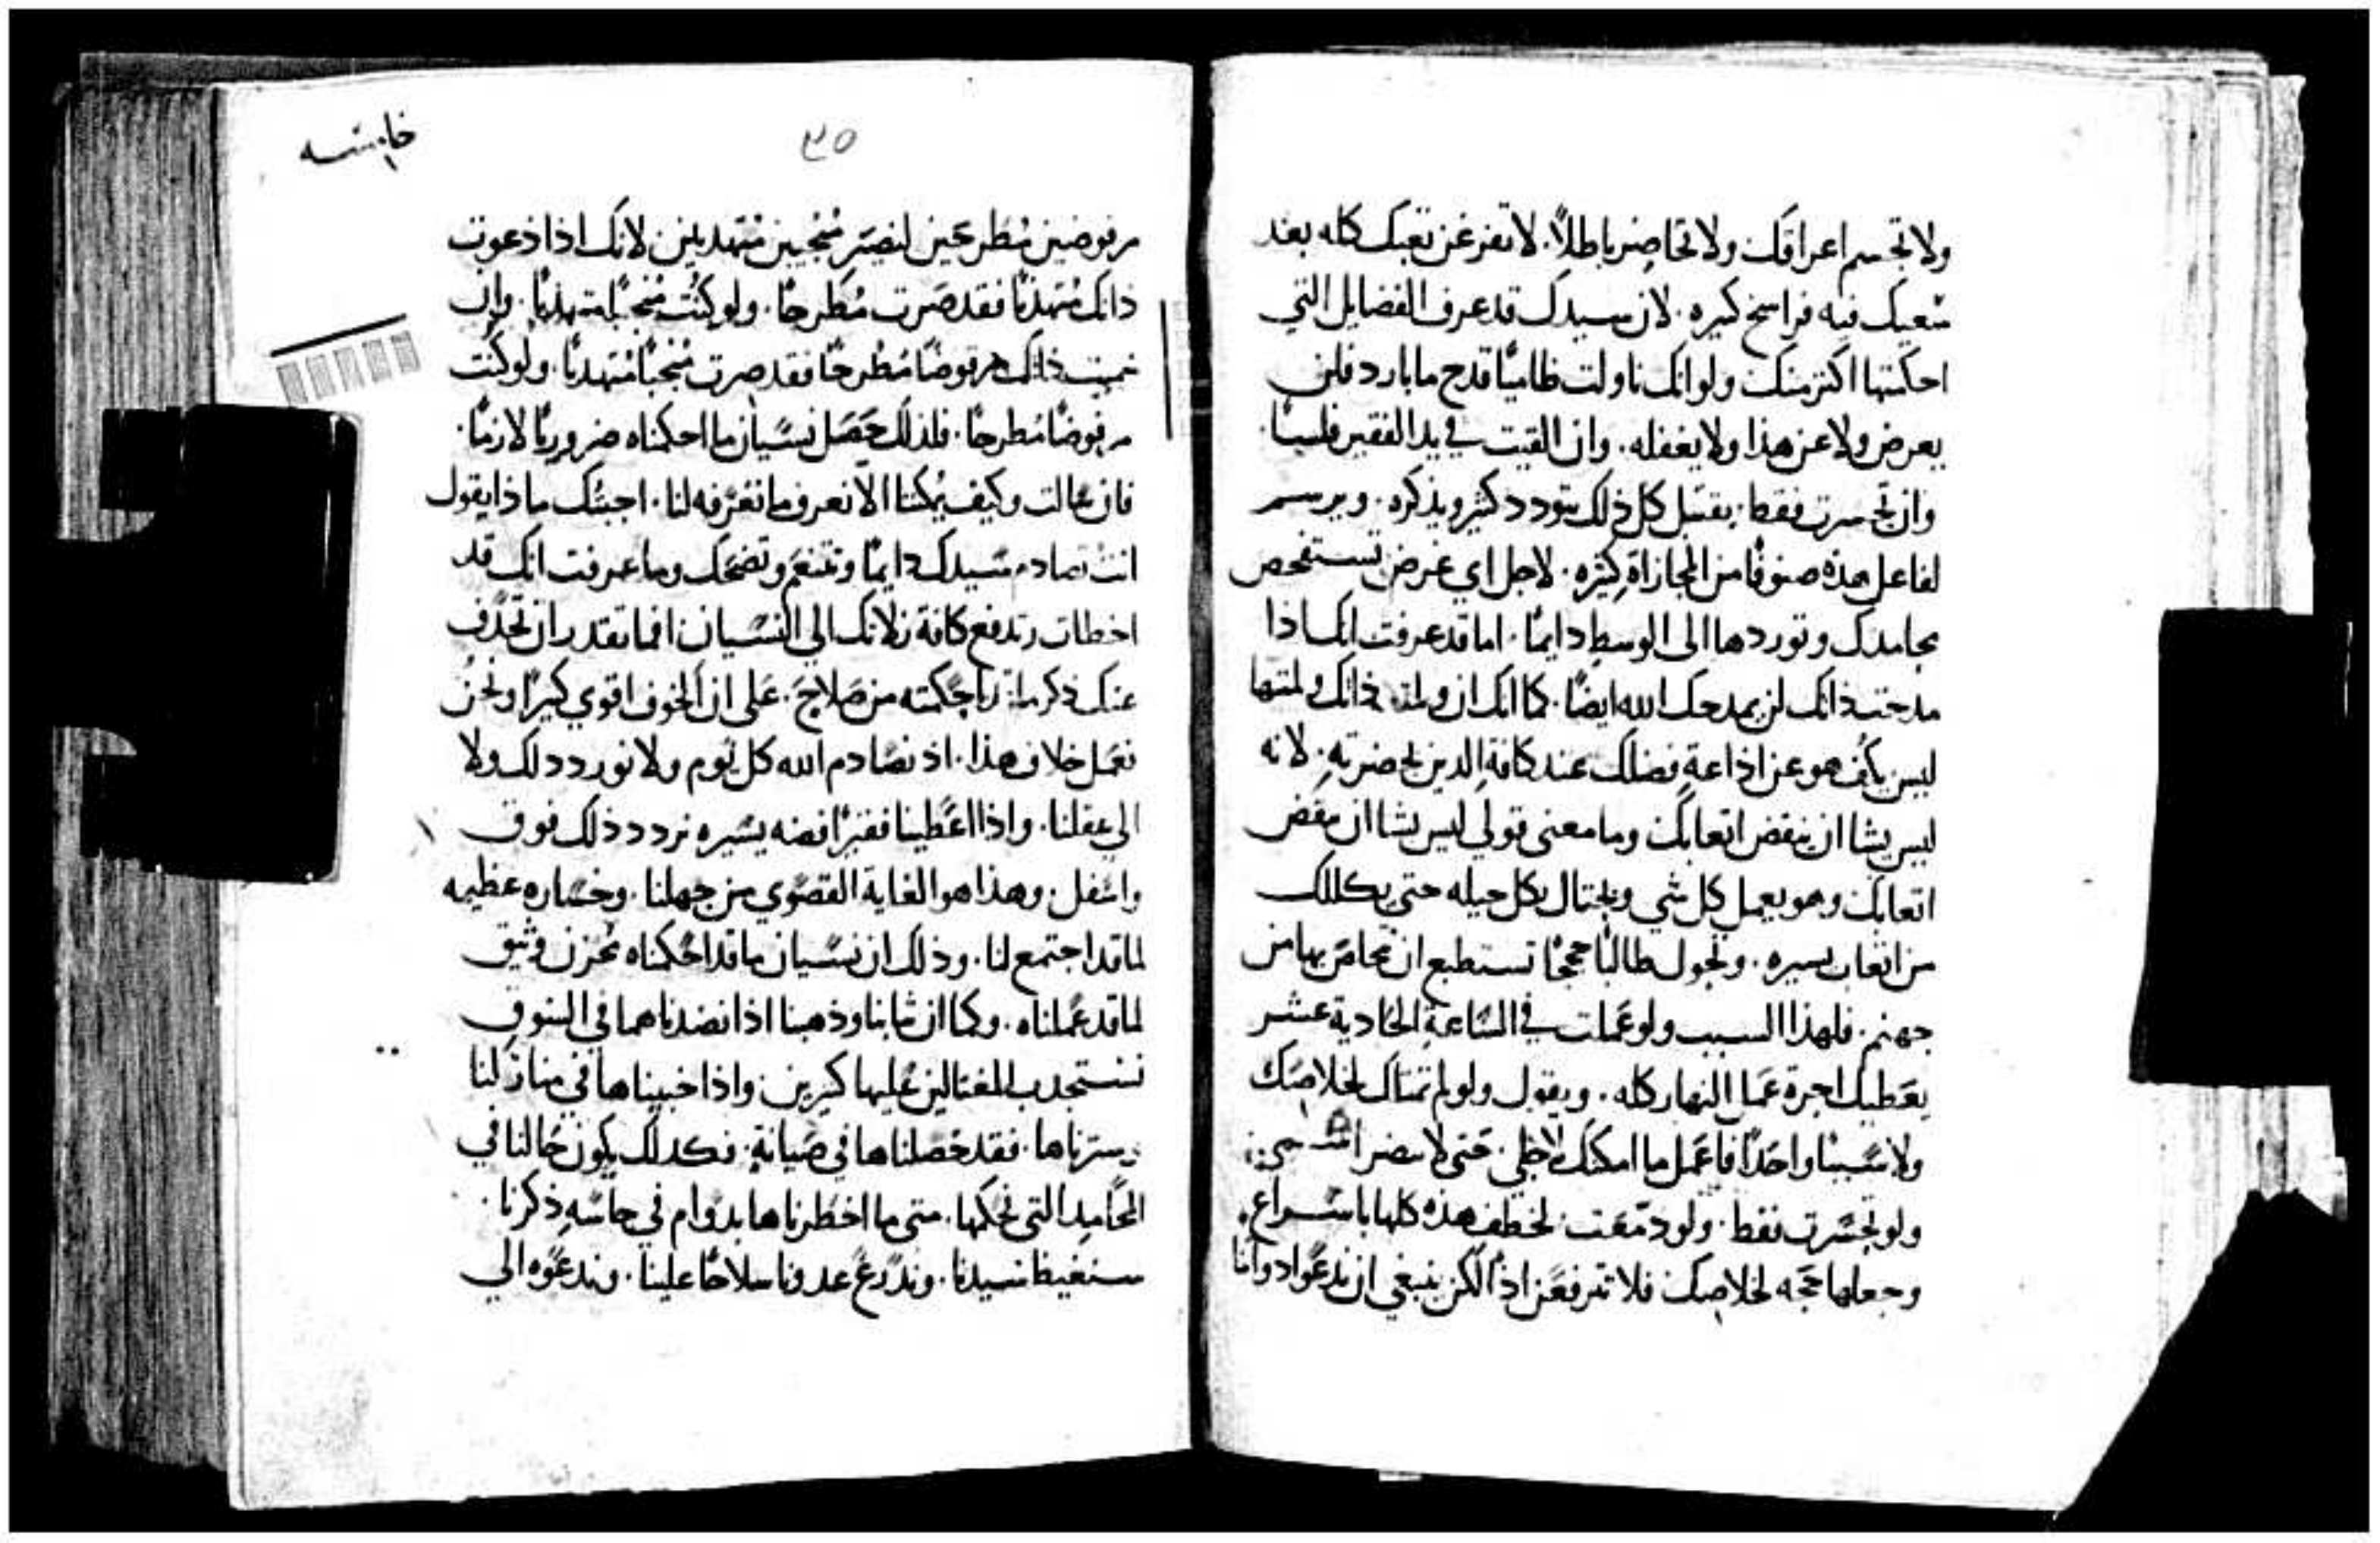 ولا تجسم اعراقك ولا تخاصم باطلاً. لا تفرغن تعبك كله بعد
سعيك فيه فراسخ كيره. لان سيدك قد عرف الفضايل التي
احكمتها اكتر منك ولو انك ناولت ظاميًا قدح ما بارد فلن
يعرض ولا عن هذا ولا يغفله. وان القيت في يد الفقير فلسًا
وان تحسرت فقط. يقتبل كل ذلك بتودد كثير ويذكره. ويرسم
لفاعل هذه صنوفًا من المجازاة كثيره. لاجل اي غرض تستفحص
محامدك وتوردها الى الوسط دايمًا. اما قد عرفت انك اذا
مدحت ذاتك لن يمدحك الله ايضًا. كما انك ان ذاتك ولمتها
ليس يكف هو عن اذاعة فضلك عند كافة الدين بحضرته. لانه
ليس يشا ان ينقض اتعابك وما معنى قولي ليس يشا ان ينقض
اتعابك وهو يعمل كل شي ويحتال بكل حيله حتى يكللك
من اتعاب يسيره. ويجول طالبًا حججًا تستطيع ان تخلص بها من
جهنم. فلهذا السبب ولو عملت في الساعة الحادية عشر
يعطيك اجرة عمل النهار كله. ويقول ولو لم تمتلك لخلاصك
ولا سببًا واحدًا فاعمل ما امكنك لاجلي. حتى لا يضر اسمي
ولو تحسرت فقط. ولو دمعت لخطف هذه كلها باسراع.
وجعلها حجه لخلاصك فلا نترفعن اذًا لكن ينبغي ان ندعوا ذواتنا
٣٥
خامسه
مرفوضين مطرحين لنصير منجبين متهدبين لانك اذا دعوت
ذاتك متهدبًا فقد صرت مطرحًا. ولو كنت منجبًا متهدبًا. وان
سميت ذاتك مرفوضًا مطرحًا فقد صرت منجبًا متهدبًا. ولو كنت
مرفوضًا مطرحًا. فلذلك حصل نسيان ما احكمناه ضروريًا لازمًا.
فان سالت وكيف يمكننا الا نعرف ما نعرفه لنا. اجبتك ماذا يقول
انت تصادم سيدك دايمًا وتتنعم وتضحك وما عرفت انك قد
اخطات وتدفع كافة زلاتك الى النسيان افما تقدر ان تحذف
عنك ذكر ما احكمته من صلاح. على ان الخوف اقوي كيرًا ونحن
نعمل خلاف هذا. اذ نصادم الله كل يوم ولا نورد دلك ولا
الي عقلنا. واذا اعطينا فقيرًا فضه يسيره نردد ذلك فوق
واسفل. وهذا هو الغاية القصوي من جهلنا. وخساره عظيمه
لما قد اجتمع لنا. وذلك ان نسيان ما قد احكمناه مخزن وثيق
لما قد عملناه. وكما ان ثيابنا وذهبنا اذا نضدناهما في السوق
نستجدب المغتالين عليها كيرين واذا خبيناها في منازلنا
وسترناها. فقد حصلناها في صيانة. فكدلك يكون حالنا في
المحامد التي نحكمها. متى ما اخطرناها بدوام في حاسه ذكرنا.
سنغيظ سيدنا. وندرع عدونا سلاحًا علينا. وندعوه الي